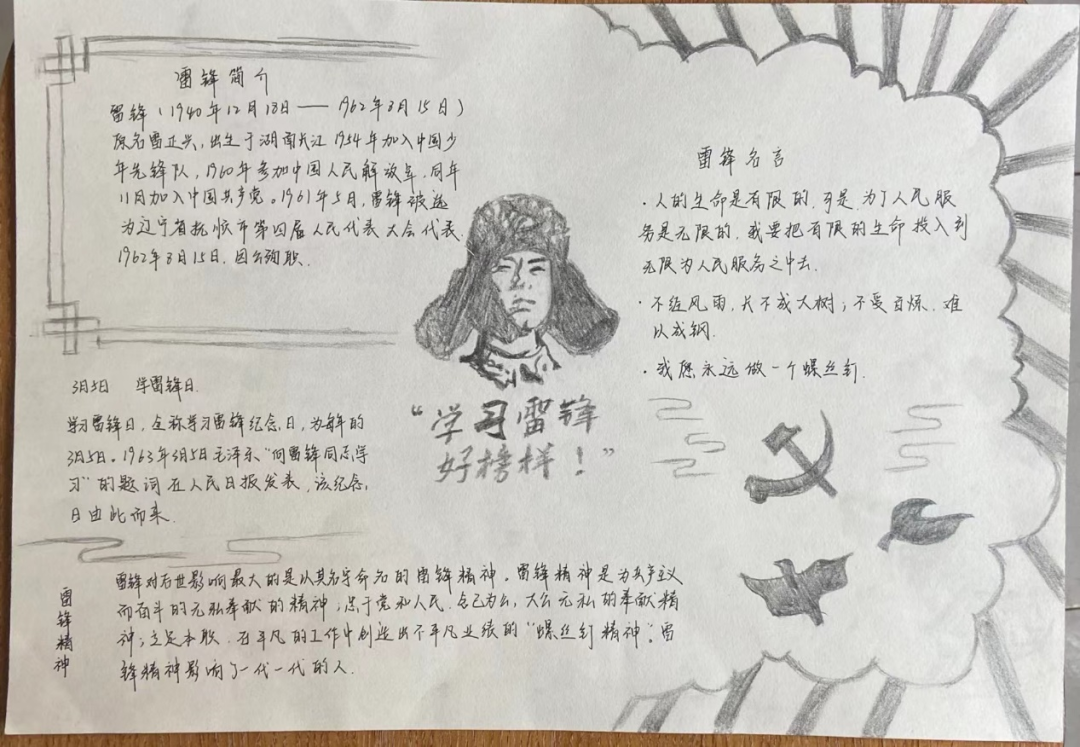 雷锋简介
雷锋（1940年12月18日——1962年8月15日）
原名雷正兴，出生于湖南长江 1954年加入中国少
年先锋队，1960年参加中国人民解放军，同年
11月加入中国共产党。1961年5月，雷锋被选
为辽宁省抚顺市第四届人民代表大会代表.
1962年8月15日，因公殉职.
3月5日 学雷锋日.
学习雷锋日，全称学习雷锋纪念日，为每年的
3月5日。1963年3月5日毛泽东“向雷锋同志学
习”的题词在人民日报发表，该纪念
日由此而来.
“学习雷锋
好榜样！”
雷锋名言
·人的生命是有限的，可是为了人民服
务是无限的，我要把有限的生命投入到
无限为人民服务之中去.
·不经风雨，长不成大树；不受百炼，难
以成钢.
·我愿永远做一个螺丝钉.
雷锋精神
雷锋对后世影响最大的是以其名字命名的雷锋精神。雷锋精神是为共产主义
而奋斗的无私奉献的精神；忠于党和人民、舍己为公，大公无私的奉献精
神；立足本职、在平凡的工作中创造出不平凡业绩的“螺丝钉精神”。雷
锋精神影响了一代一代的人.